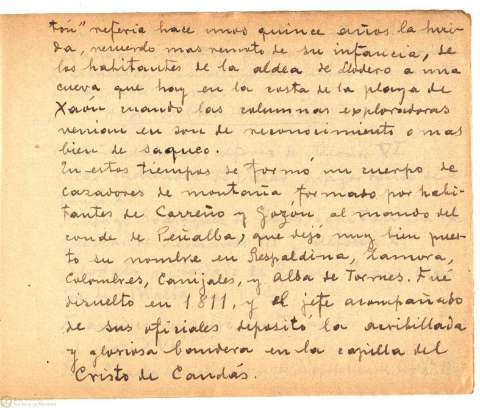 tón" referia hace unos quince años la huri-
da, recuerdo mas remoto de su infancia, de
los habitantes de la aldea de Llodero a una
cueva que hay en la costa de la playa de
Xaón cuando las columnas exploradoras
venian en son de reconocimiento o mas
bien de saqueo.
En estos tiempos se formó, un cuerpo de
cazadores de montaña, formado por habi-
tantes de Carreño y Gozón, al mando del
conde de Peñalba, que dejó muy bien pues-
to su nombre en Respaldina, Zamora,
Colombres, Canijales, y Alba de Tormes. Fué
disuelto en 1811, y el jefe acompañado
de sus oficiales deposito la acribillada
y gloriosa bandera en la capilla del
Cristo de Candás.